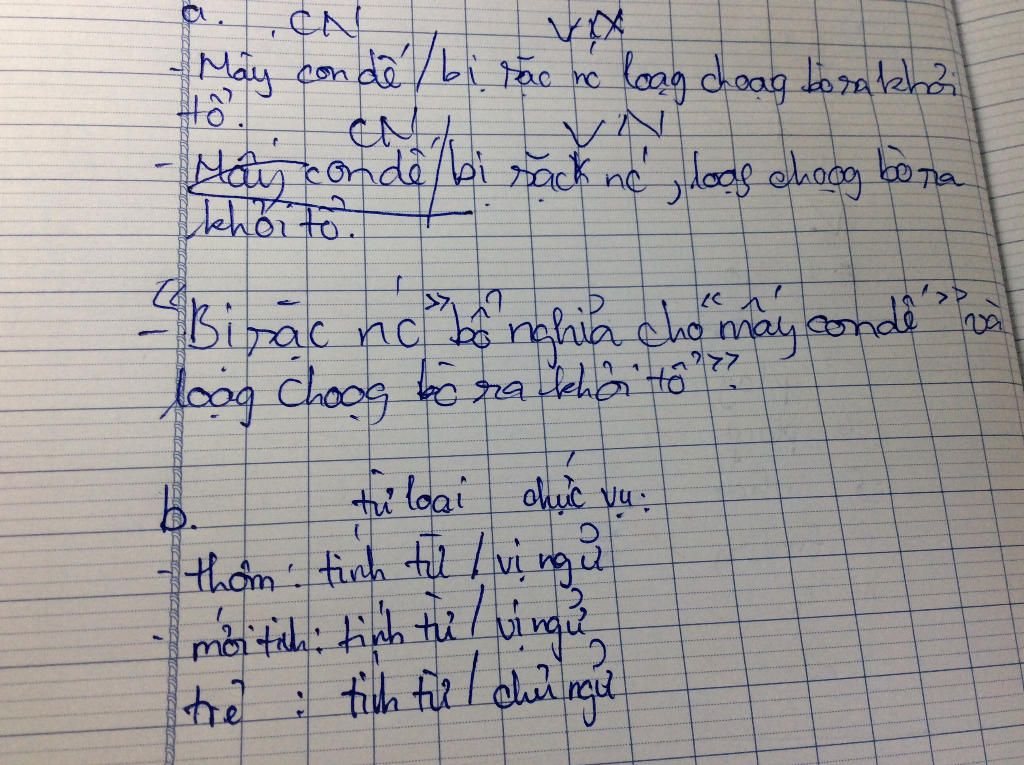 a. CN VN
- Mấy con dế / bị sặc nc loạg choạg bò ra khỏi
tổ. CN VN
- Mấy con dế / bị sặc nc, loạg choạg bò ra
khỏi tổ.
- "Bị sặc nc" bổ nghĩa cho "mấy con dế" và
loạg choạg bò ra khỏi tổ".
b. từ loại chức vụ:
- thơm: tính từ / vị ngữ
- mới tinh: tính từ / vị ngữ
trẻ : tính từ / chủ ngữ